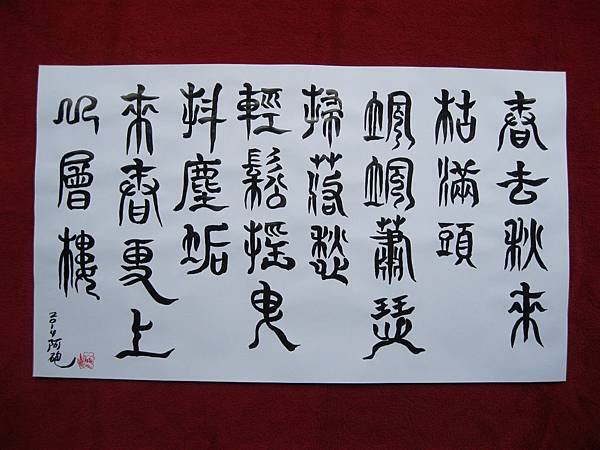 春去秋來
枯滿頭
颯颯蕭瑟
掃落愁
輕鬆搖曳
抖塵垢
來春更上
心層樓
2014阿砲